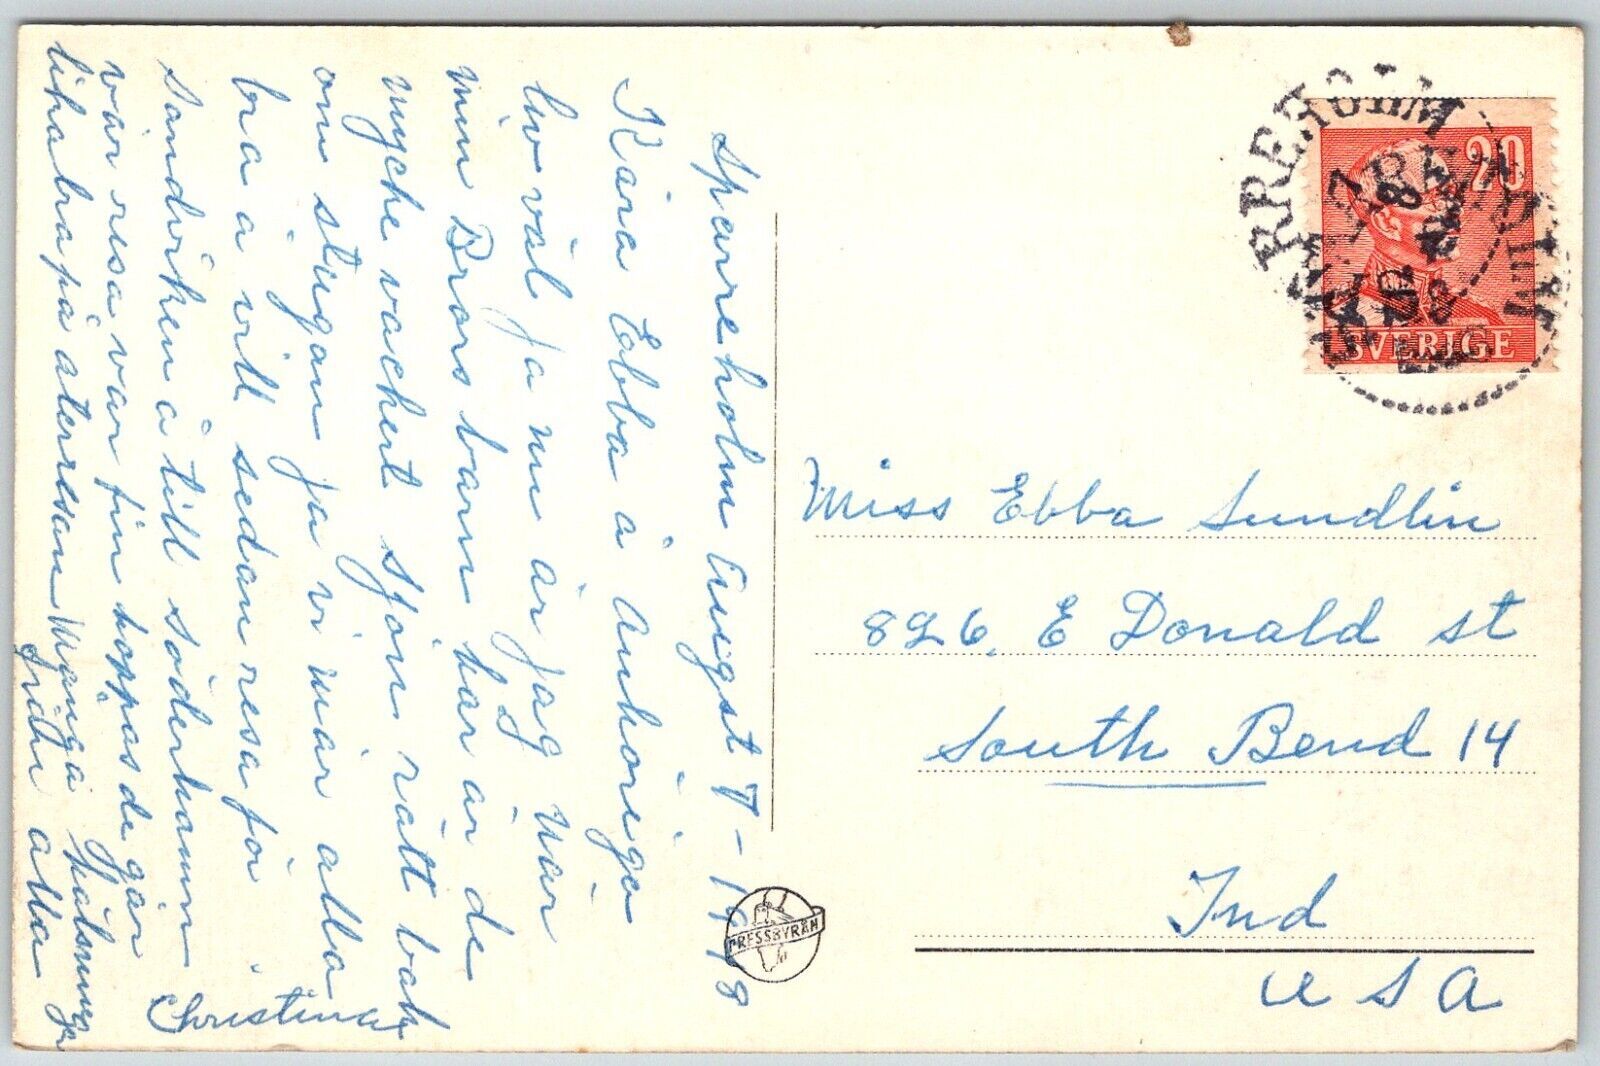 Sparreholm Augst 7-1948
Kära Ebba å Anhöriga
ho väl ja nu är jag här
min Brors barn här är de
myche vachert sjön rätt bak
om stugan ja vi mår alla
bra å vill sedan resa för
Sandviken å till söderhamn
vår resa var fin hoppas de går
lika bra på återresan Många hälsningar
från alla
Christina
SPARREHOLM
20
SVERIGE
Miss Ebba Sundlin
826, E Donald st
South Bend 14
Ind
USA
PRESSBYRÅN